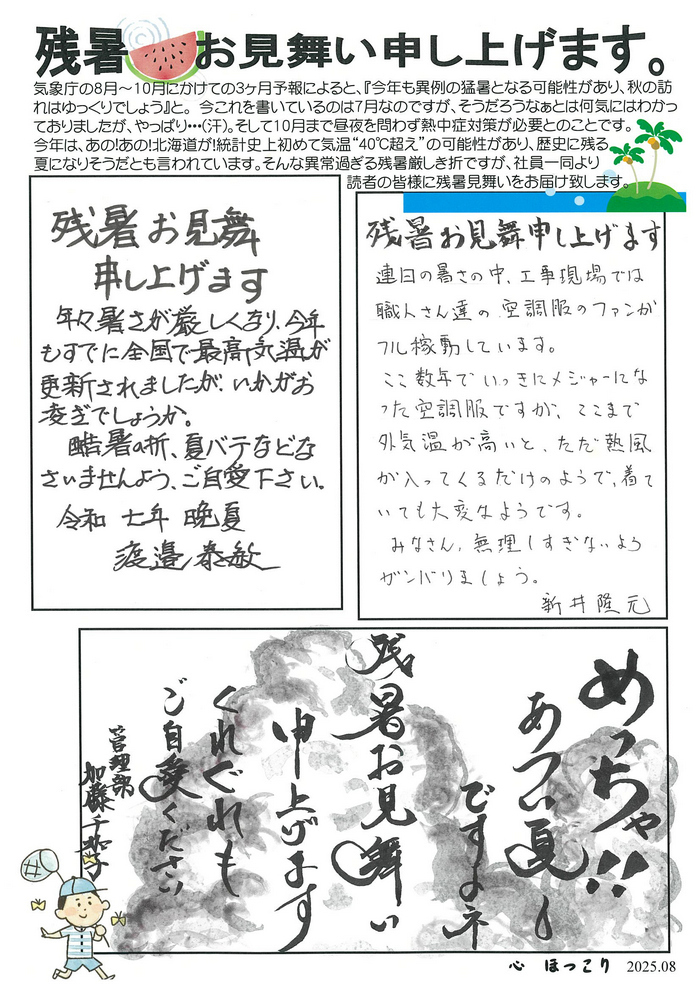 残暑お見舞い申し上げます。
気象庁の8月～10月にかけての3ヶ月予報によると、『今年も異例の猛暑となる可能性があり、秋の訪
れはゆっくりでしょう』と。 今これを書いているのは7月なのですが、そうだろうなぁとは何気にはわかっ
ておりましたが、やっぱり・・・(汗)。そして10月まで昼夜を問わず熱中症対策が必要とのことです。
今年は、あの!あの!北海道が!統計史上初めて気温“40℃超え”の可能性があり、歴史に残る
夏になりそうだとも言われています。そんな異常過ぎる残暑厳しき折ですが、社員一同より
読者の皆様に残暑見舞いをお届け致します。
残暑お見舞
申し上げます
年々暑さが厳しくなり、今年
もすでに全国で最高気温が
更新されましたが、いかがお
凌ぎでしょうか。
酷暑の折、夏バテなどな
さいませんよう、ご自愛下さい。
令和 七年 晩夏
渡邉 泰敏
残暑お見舞申し上げます
連日の暑さの中、工事現場では
職人さん達の空調服のファンが
フル稼動しています。
ここ数年でいっきにメジャーにな
った空調服ですが、ここまで
外気温が高いと、ただ熱風
が入ってくるだけのようで、着て
いても大変なようです。
みなさん、無理しすぎないよう
ガンバりましょう。
新井隆元
めっちゃ!!
あつい夏
ですよネ
残暑お見舞い
申上げます
くれぐれも
ご自愛ください
管理部
加藤千和子
心 ほっこり 2025.08